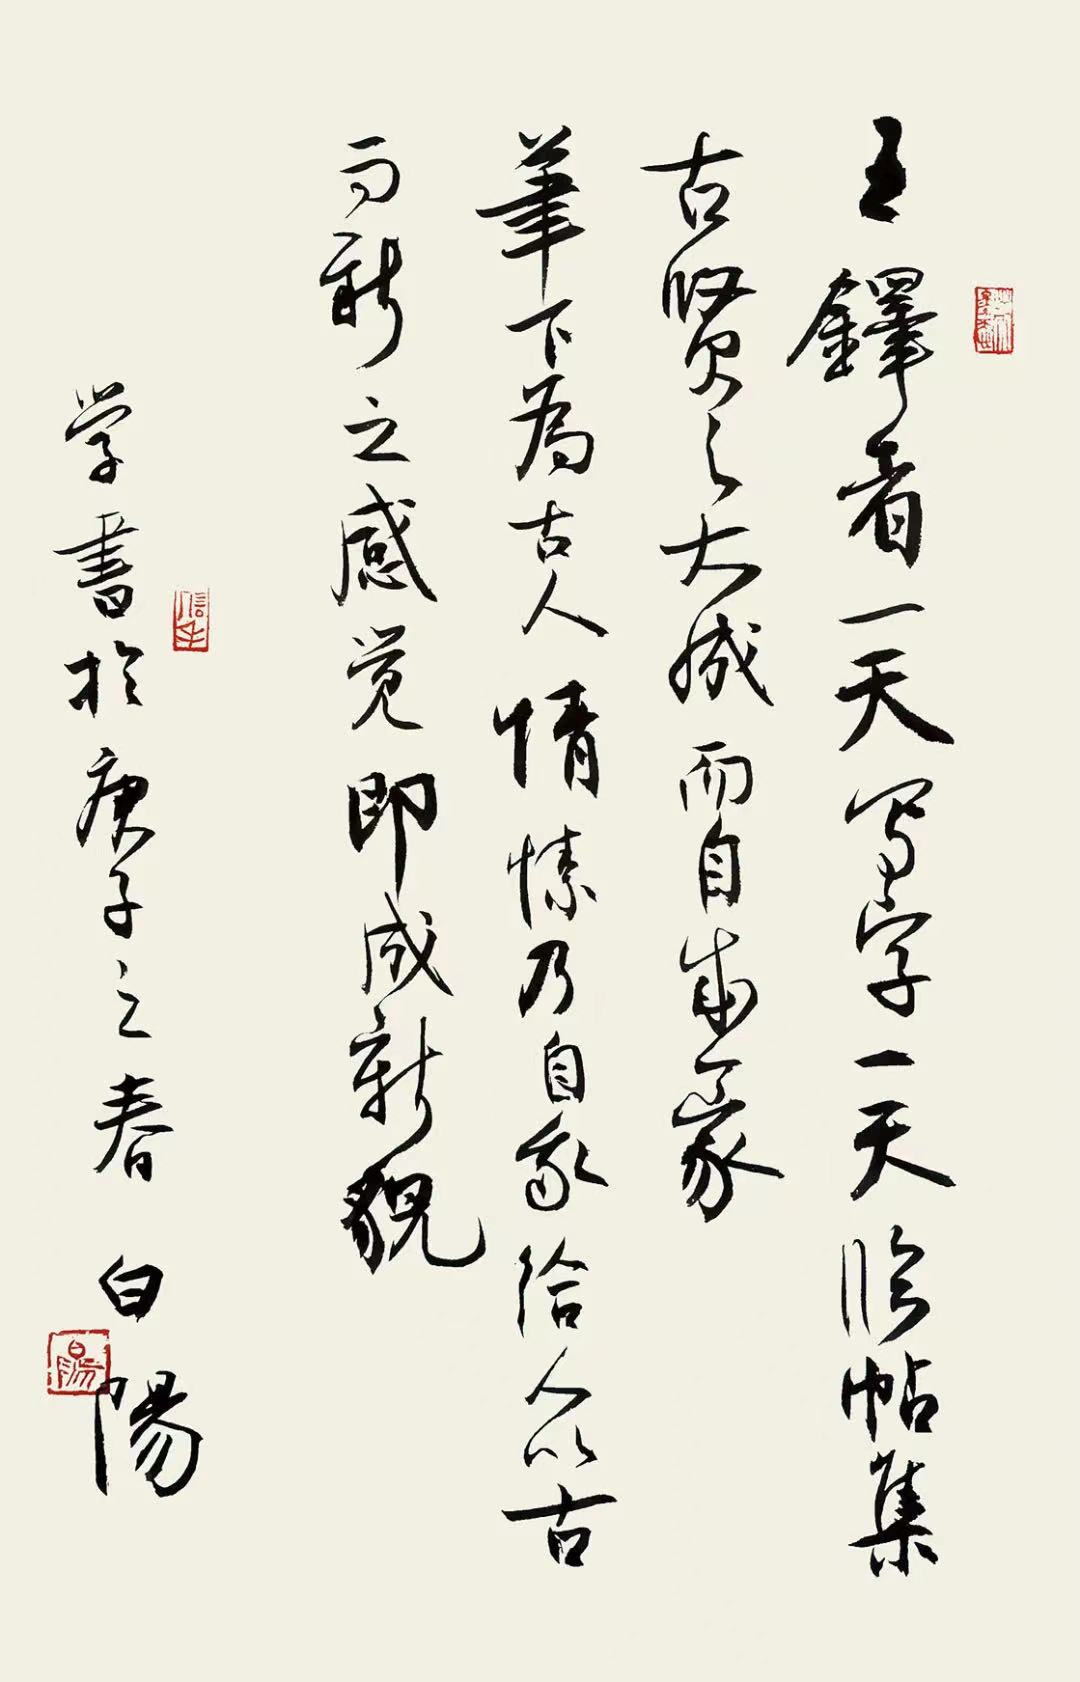 王鐸者一天写字一天临帖集
古贤之大成而自成家
筆下為古人情愫乃自我给人以古
而新之感觉即成新貌
学書於庚子之春 白陽